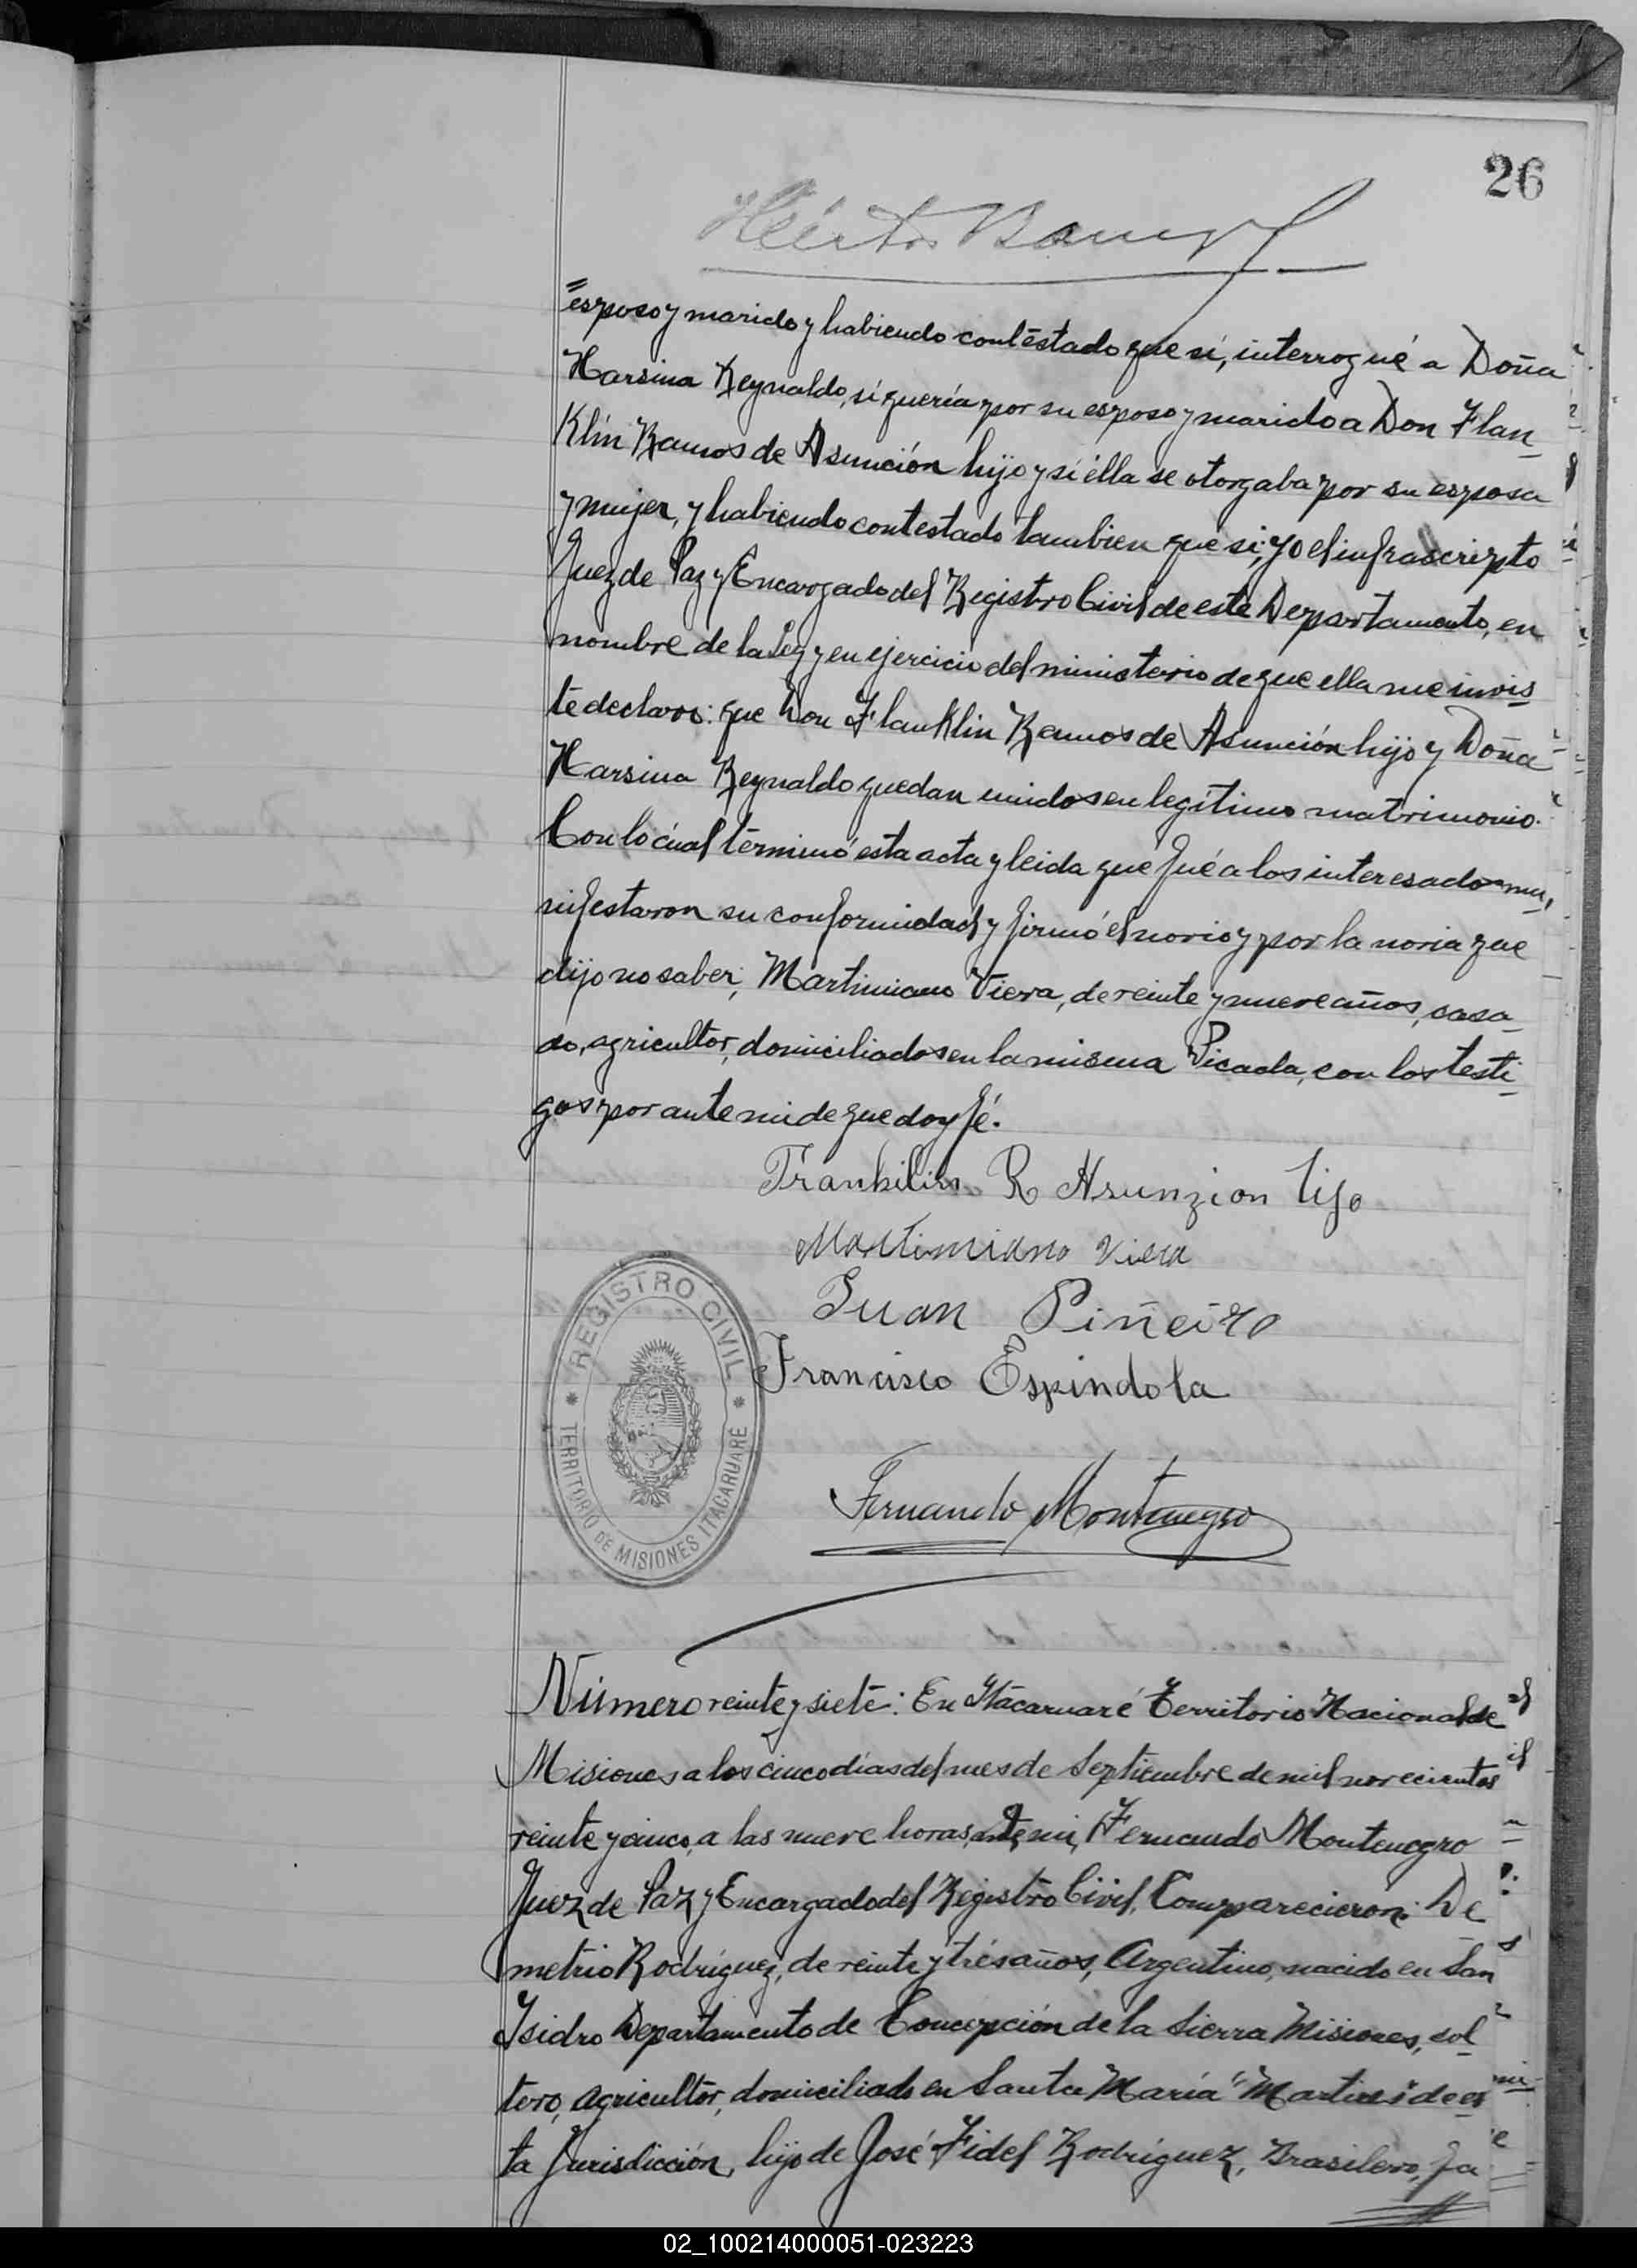 26
esposo y marido y habiendo contestado que sí, interrogué a Doña
Harsina Reynaldo, sí quería por su esposo y marido a Don Flan_
Klín Ramos de Asunción hijo y sí élla se otorgaba por su esposa
y mujer, y habiendo contestado tambien que si; yo el infrascripto
Juez de Paz y Encargado del Registro Civil de este Departamento, en
nombre de la Ley y en ejercicio del ministerio de que ella me invis_
te declaro: que Don Flanklin Ramos de Asunción hijo y Doña
Harsina Reynaldo quedan unidos en legítimo matrimonio.
Con lo cúal términó esta acta y leida que fué a los interesados ma_
nifestaron su conformidad y firmó el novio y por la novia que
dijo no saber; Martiniano Viera, de veinte y nueve años, casa_
do, agricultor, domiciliados en la misma Picada, con los testi_
gos por ante mi de que doy fé.
Trankilin R Asunzion hijo
Martimiano Viera
Juan Piñeiro
Francisco Espindola
REGISTRO CIVIL
TERRITORIO DE MISIONES ITACARUARE
Fernando Montenegro
Número veinte y siete: En Itacaruaré Territorio Nacional de
Misiones a los cinco días del mes de Septiembre de mil novecientos
veinte y cinco, a las nueve horas, ante mi, Fernando Montenegro
Juez de Paz y Encargado del Registro Civil, Comparecieron: De
metrio Rodríguez, de veinte y trés años, Argentino, nacido en San
Isidro Departamento de Concepción de la Sierra Misiones, sol_
tero, agricultor, domiciliado en Santa María "Martires" de es_
ta Jurisdicción, hijo de José Fidel Rodríguez, Brasilero, fa
02_100214000051-023223